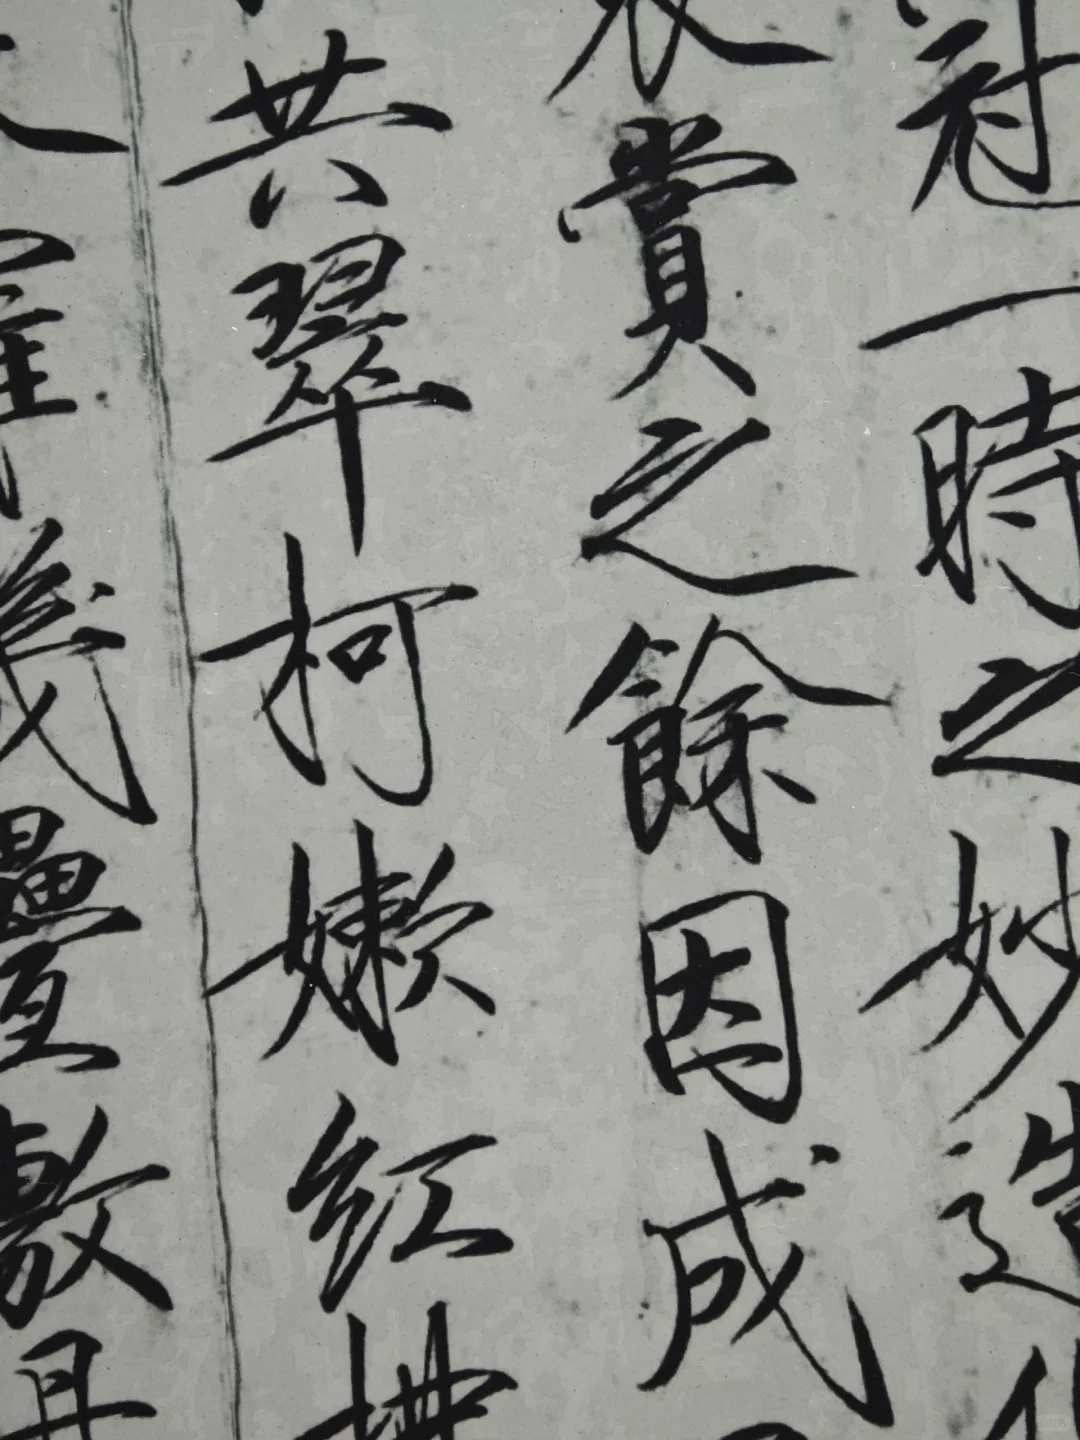 冠一時之妙造化
賞之餘因成
共翠柯嫩紅拂
羅幾疊敷丹